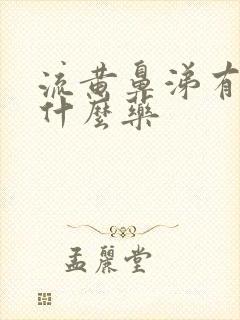 流黄鼻涕有
什麼藥
孟麗堂